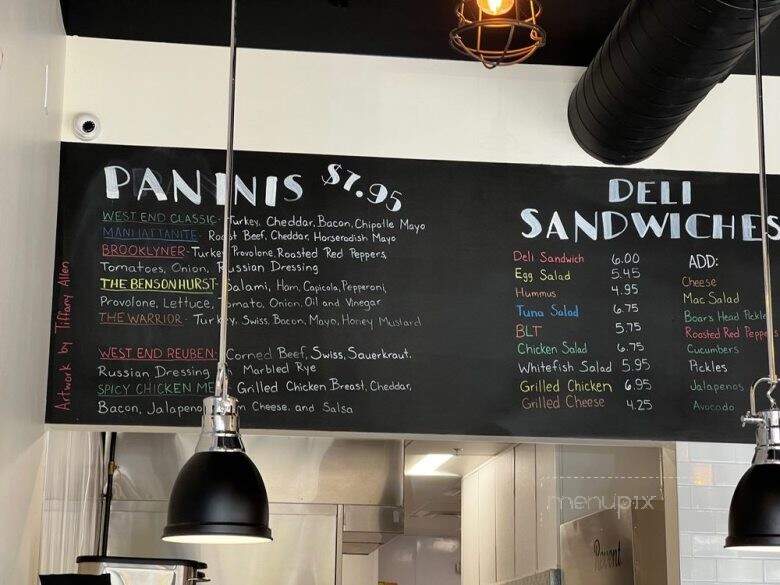 PANINIS $7.95
WEST END CLASSIC- Turkey, Cheddar, Bacon, Chipotle Mayo
MANHATTANITE- Roast Beef, Cheddar, Horseradish Mayo
BROOKLYNER- Turkey, Provolone, Roasted Red Peppers,
Tomatoes, Onion, Russian Dressing
THE BENSONHURST- Salami, Ham, Capicola, Pepperoni,
Provolone, Lettuce, Tomato, Onion, Oil and Vinegar
THE WARRIOR- Turkey, Swiss, Bacon, Mayo, Honey Mustard
WEST END REUBEN- Corned Beef, Swiss, Sauerkraut,
Russian Dressing on Marbled Rye
SPICY CHICKEN Grilled Chicken Breast, Cheddar,
Bacon, Jalapeno Cheese, and Salsa
Artwork by Tiffany Allen
DELI
SANDWICHES
Deli Sandwich 6.00
Egg Salad 5.45
Hummus 4.95
Tuna Salad 6.75
BLT 5.75
Chicken Salad 6.75
Whitefish Salad 5.95
Grilled Chicken 6.95
Grilled Cheese 4.25
ADD:
Cheese
Mac Salad
Boar's Head Pickle
Roasted Red Peppers
Cucumbers
Pickles
Jalapenos
Avocado
menupix